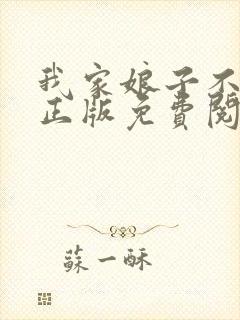 我家娘子不
正版免費閱
蘇一酥